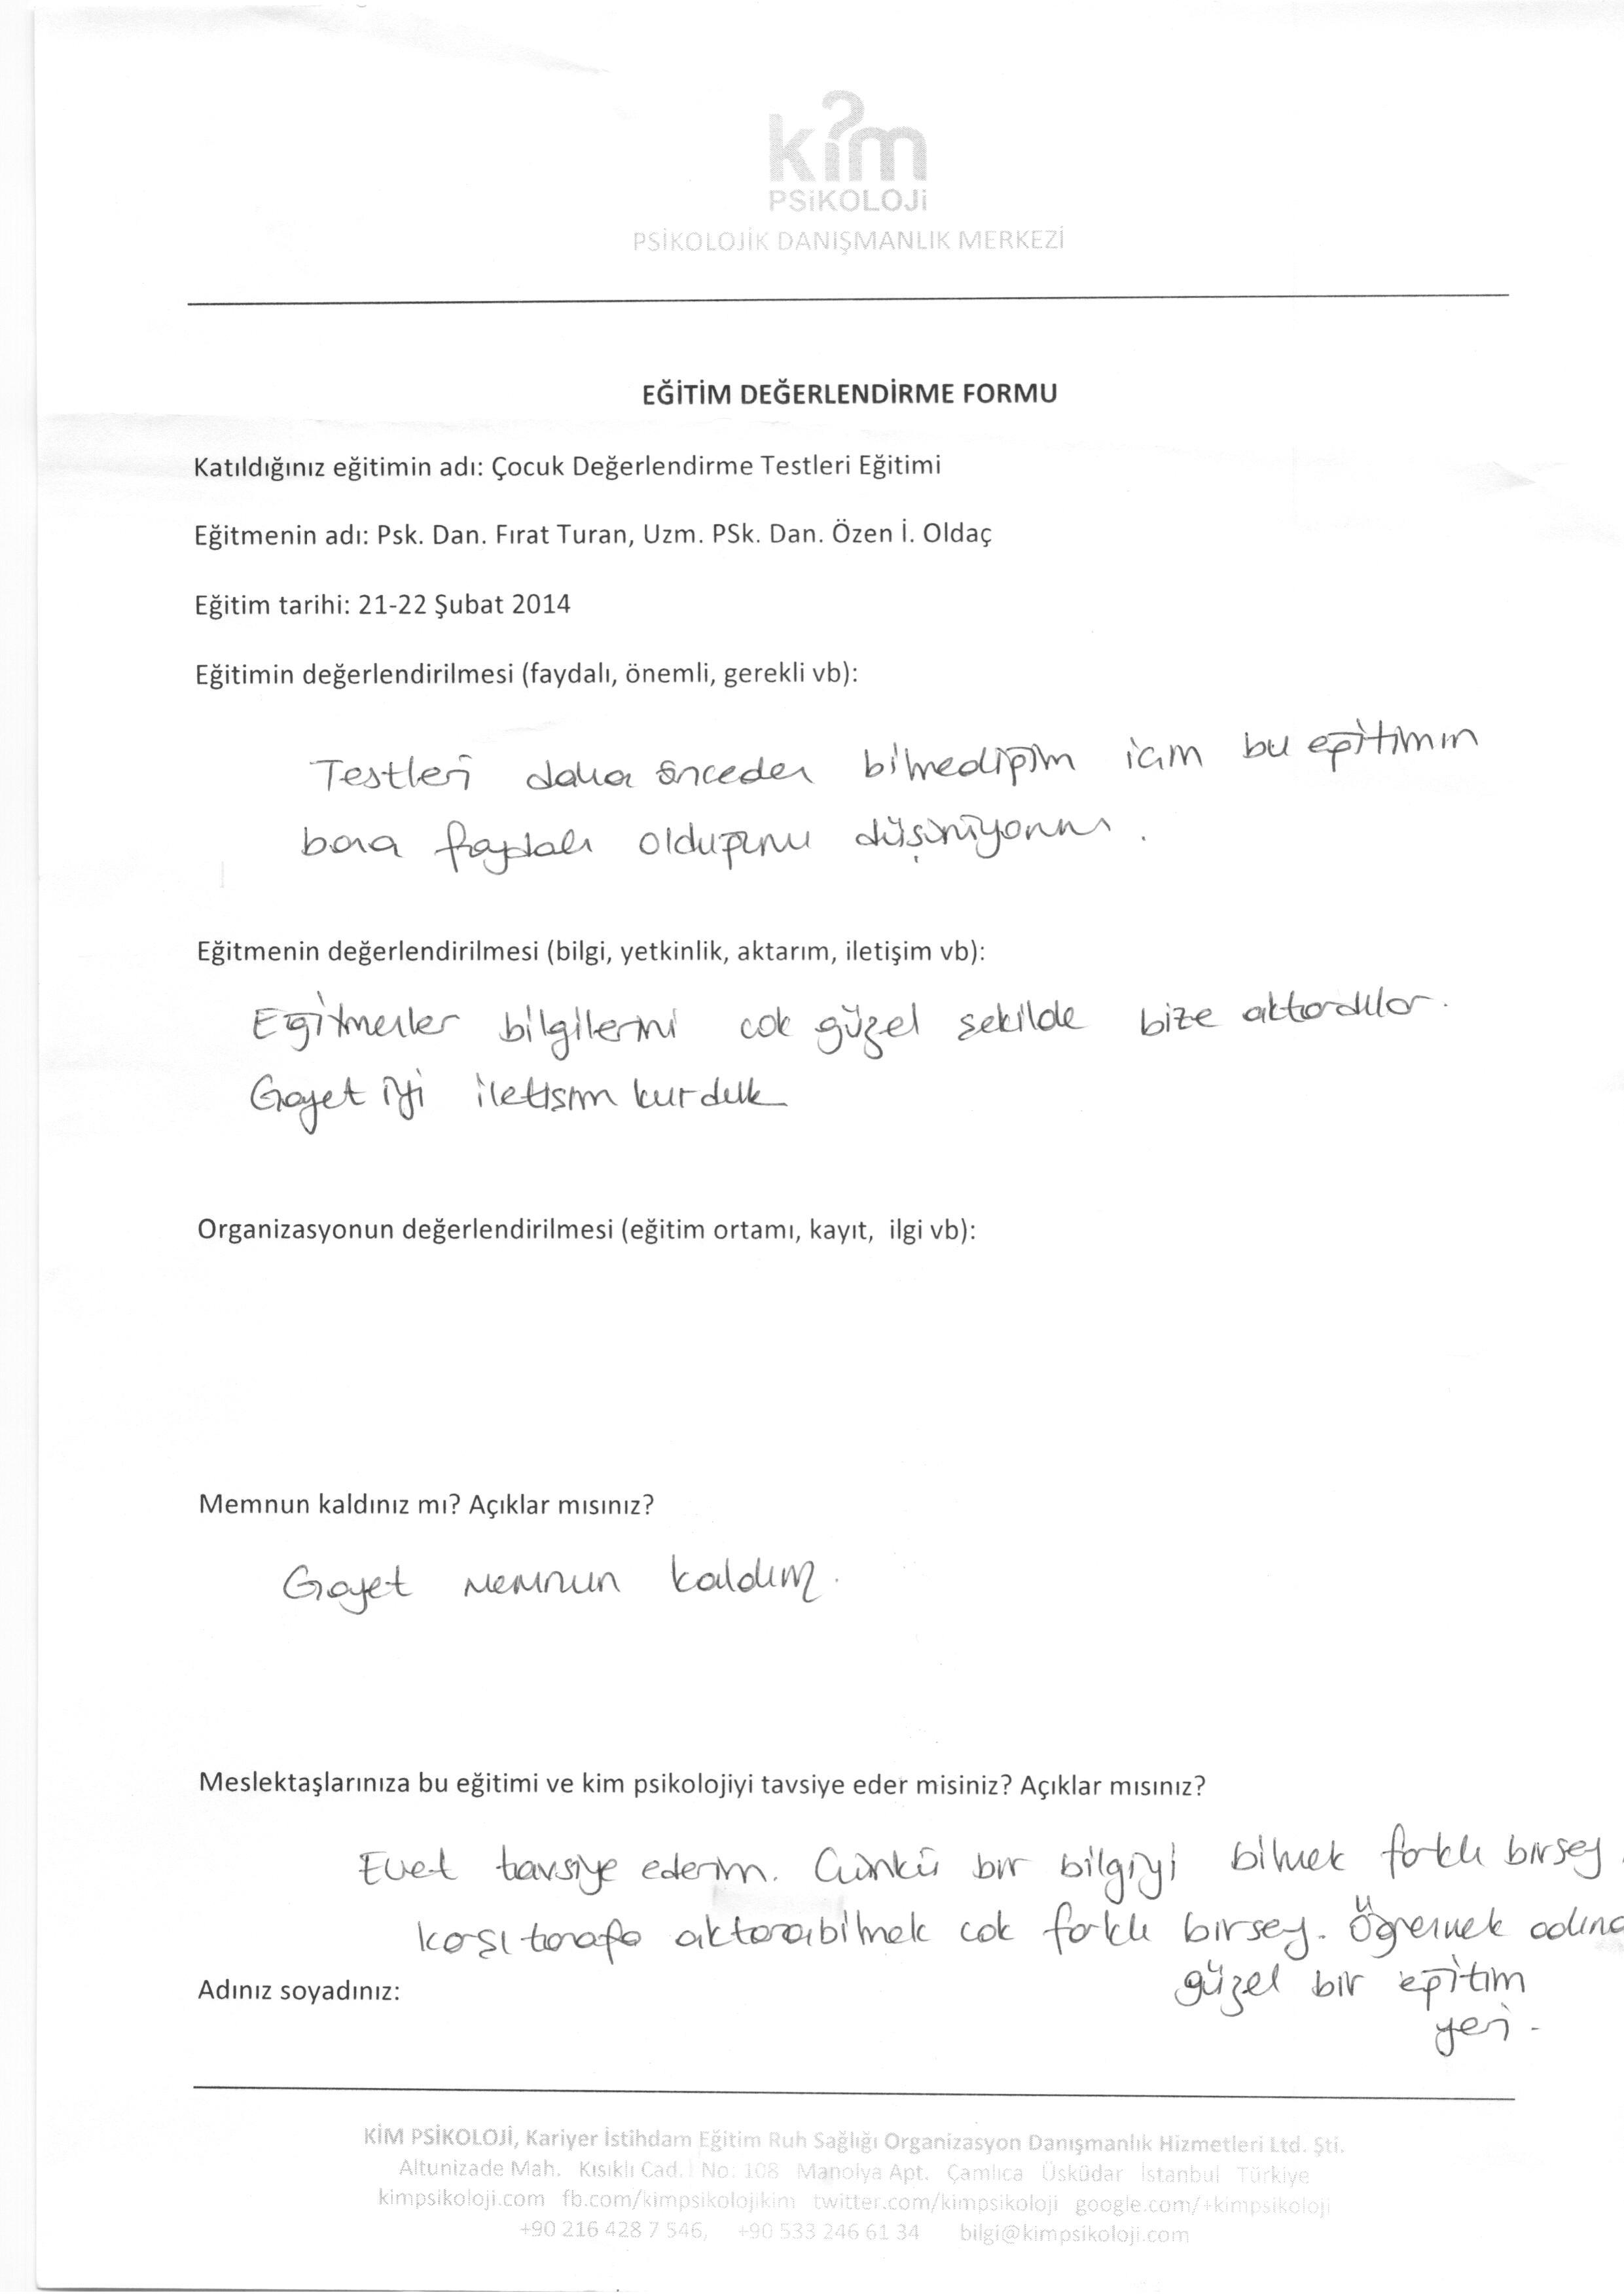 kim
PSiKOLOJi
PSİKOLOJİK DANIŞMANLIK MERKEZİ
EĞİTİM DEĞERLENDİRME FORMU
Katıldığınız eğitimin adı: Çocuk Değerlendirme Testleri Eğitimi
Eğitmenin adı: Psk. Dan. Fırat Turan, Uzm. PSk. Dan. Özen İ. Oldaç
Eğitim tarihi: 21-22 Şubat 2014
Eğitimin değerlendirilmesi (faydalı, önemli, gerekli vb):
Testleri daha önceden bilmediğim icin bu eğitimin
bana faydalı olduğunu düşünüyorum.
Eğitmenin değerlendirilmesi (bilgi, yetkinlik, aktarım, iletişim vb):
Eğitmenler bilgilerini cok güzel sekilde bize aktardılar.
Gayet iyi iletisim kurduk
Organizasyonun değerlendirilmesi (eğitim ortamı, kayıt, ilgi vb):
Memnun kaldınız mı? Açıklar mısınız?
Gayet memnun kaldım.
Meslektaşlarınıza bu eğitimi ve kim psikolojiyi tavsiye eder misiniz? Açıklar mısınız?
Evet tavsiye ederim. Cünkü bir bilgiyi bilmek farklı birsey
karsı tarafa aktarabilmek cok farklı birsey. Öğrenmek adına
güzel bir eğitim
yeri.
Adınız soyadınız:
KİM PSİKOLOJİ, Kariyer İstihdam Eğitim Ruh Sağlığı Organizasyon Danışmanlık Hizmetleri Ltd. Şti.
Altunizade Mah. Kısıklı Cad. No: 108 Manolya Apt. Çamlıca Üsküdar İstanbul Türkiye
kimpsikoloji.com fb.com/kimpsikolojikim twitter.com/kimpsikoloji google.com/+kimpsikoloji
+90 216 428 7 546, +90 533 246 61 34 bilgi@kimpsikoloji.com